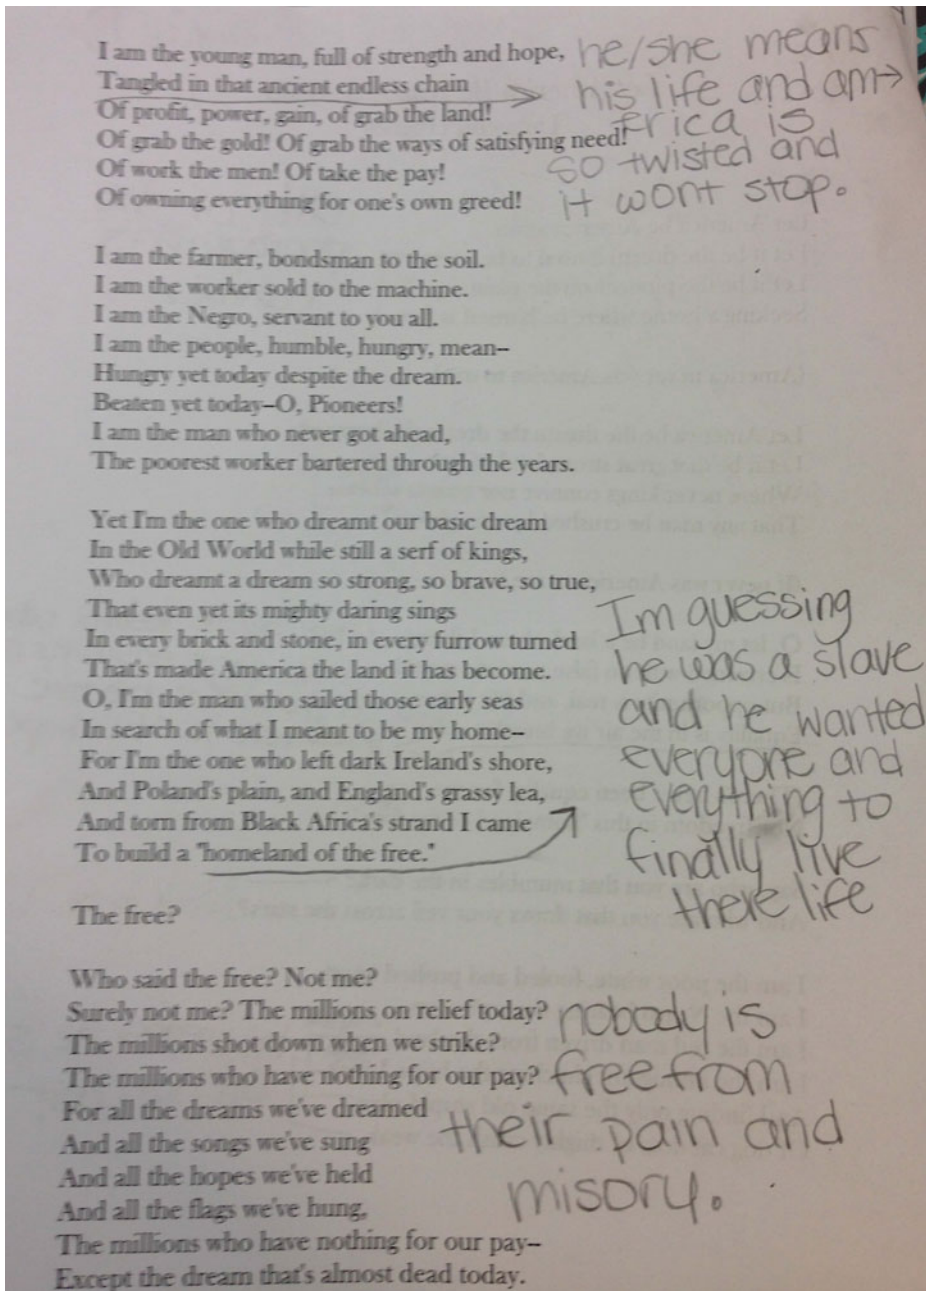 I am the young man, full of strength and hope,
Tangled in that ancient endless chain
Of profit, power, gain, of grab the land!
Of grab the gold! Of grab the ways of satisfying need!
Of work the men! Of take the pay!
Of owning everything for one's own greed!
he/she means
his life and am→
erica is
so twisted and
it wont stop.
I am the farmer, bondsman to the soil.
I am the worker sold to the machine.
I am the Negro, servant to you all.
I am the people, humble, hungry, mean–
Hungry yet today despite the dream.
Beaten yet today–O, Pioneers!
I am the man who never got ahead,
The poorest worker bartered through the years.
Yet I'm the one who dreamt our basic dream
In the Old World while still a serf of kings,
Who dreamt a dream so strong, so brave, so true,
That even yet its mighty daring sings
In every brick and stone, in every furrow turned
That's made America the land it has become.
O, I'm the man who sailed those early seas
In search of what I meant to be my home–
For I'm the one who left dark Ireland's shore,
And Poland's plain, and England's grassy lea,
And torn from Black Africa's strand I came
To build a "homeland of the free."
Im guessing
he was a slave
and he wanted
everyone and
everything to
finally live
there life
The free?
Who said the free? Not me?
Surely not me? The millions on relief today?
The millions shot down when we strike?
The millions who have nothing for our pay?
For all the dreams we've dreamed
And all the songs we've sung
And all the hopes we've held
And all the flags we've hung,
The millions who have nothing for our pay–
Except the dream that's almost dead today.
nobody is
free from
their pain and
misory.